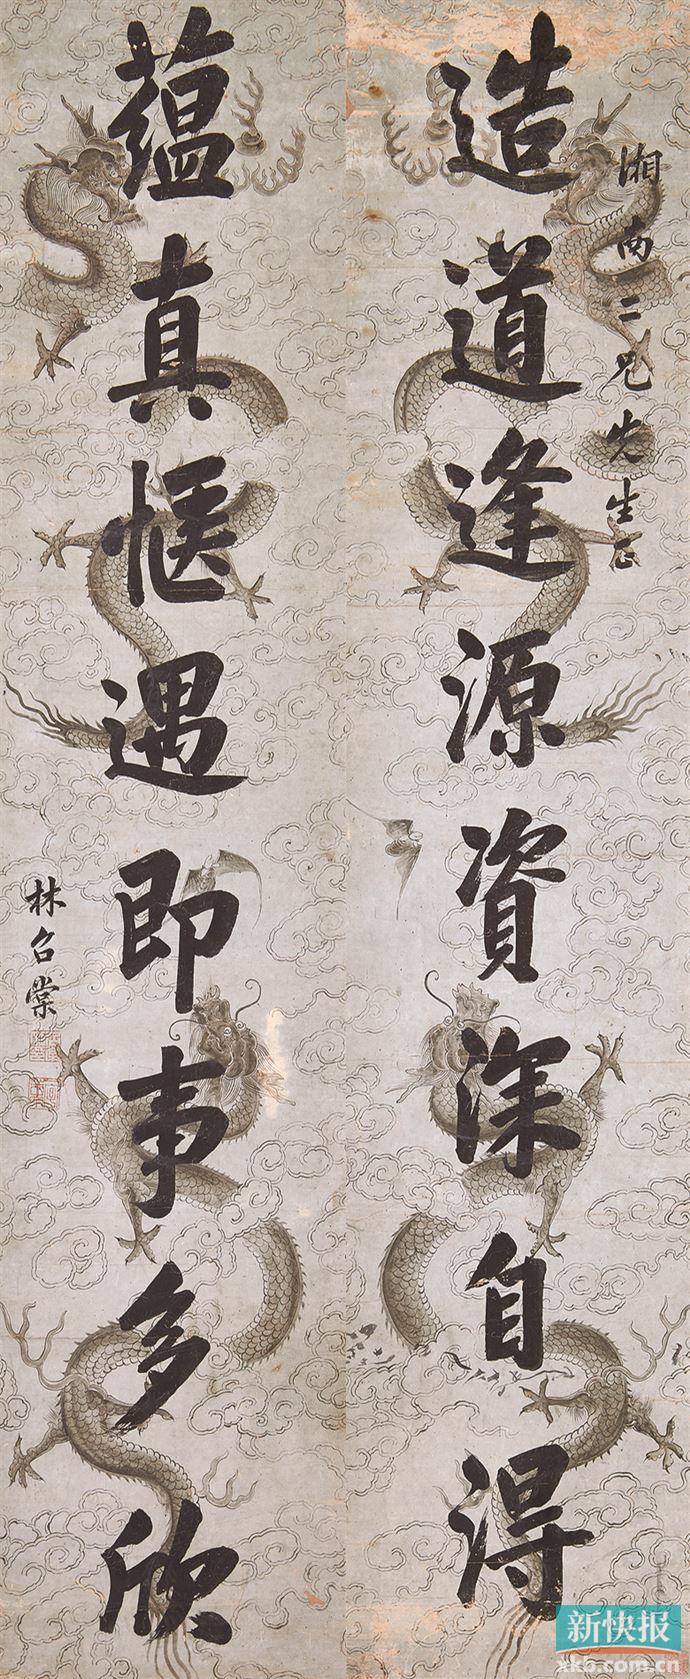 湘南二兄先生正
造道逢源資深自得
藴真愜遇即事多欣
林召棠
新快报
xkb.com.cn